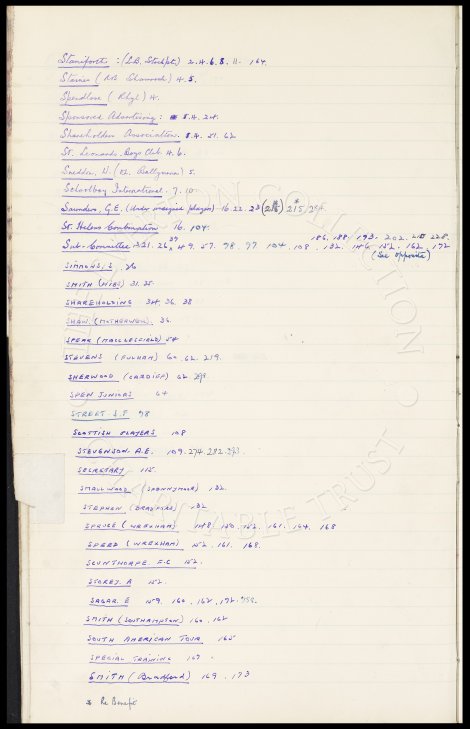 Staniforth : (L.B. Stockpt.) 2. 4. 6. 8. 11. 164.
Stainer ( NB Shamrock) 4. 5.
Spendlove ( Rhyl) 4.
Sponsored Advertising : 5. 4. 24.
Shareholders Association. 5. 4. 51. 62
St. Leonards Boys Club. 4. 6.
Snedden, N. ( Ballymena) 5.
Schoolboy International. 7. 10.
Saunders, G.E. (Under insured player) 16. 22. 23 (216) 215, 284.
St. Helens Combination 16. 104.
Sub-Committee 21. 26, 39 49. 57. 78. 97. 104. 108. 132. 146. 152. 162. 172
186. 188. 193. 202. 215 228.
(See opposite)
SIMMONS, S. 26
SMITH (HIBS) 31. 35.
SHAREHOLDING 34. 36. 38
SHAW. (MOTHERWELL). 36.
SPEAR (MACCLESFIELD) 54
STEVENS (FULHAM) 60. 62. 219.
SHERWOOD (CARDIFF) 62. 298.
SPEN JUNIORS 64
STREET S.F 98
SCOTTISH PLAYERS 108
STEVENSON. A.E. 109. 274. 282. 293.
SECRETARY 115.
SMALLWOOD (SPENNYMOOR) 132.
STEPHEN (BRADFORD) 132
SPRUCE (WREXHAM) 148. 150. 152. 161. 164. 168
SPEED (WREXHAM) 152. 161. 168.
SCUNTHORPE. F.C 152.
STOREY. A 152.
SAGAR. E 159. 160. 162. 172. 259.
SMITH (SOUTHAMPTON) 160. 162
SOUTH AMERICAN TOUR 165
SPECIAL TRAINING 167.
SMITH (Bradford) 169. 173
* Re Benefit